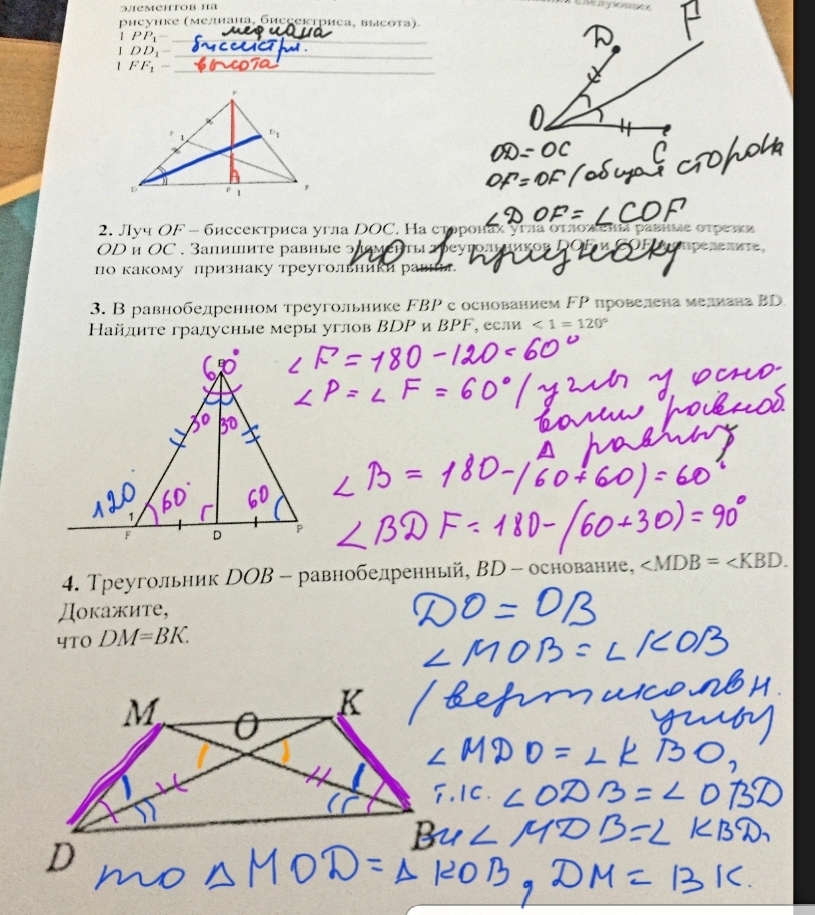 элементов на
рисунке (медиана, биссектриса, высота).
1 PP₁ – медиана
1 DD₁ – биссектри.
1 FF₁ – высота
D
F
O
C
OD = OC
OF = OF / общая сторона
∠DOF = ∠COF
2. Луч OF – биссектриса угла DOC. На сторонах угла отложены равные отрезки
OD и OC . Запишите равные элементы треугольников DOF и COF и определите,
по какому признаку треугольники равны.
по 1 признаку
3. В равнобедренном треугольнике FBP с основанием FP проведена медиана BD.
Найдите градусные меры углов BDP и BPF, если < 1 = 120°
60°
30 30
120°
1
60°
60
F D P
∠F = 180 – 120 = 60°
∠P = ∠F = 60° / углы у осно-
вания равноб.
Δ равны)
∠B = 180 – (60 + 60) = 60°
∠BDF = 180 – (60 + 30) = 90°
4. Треугольник DOB – равнобедренный, BD – основание, ∠MDB = ∠KBD.
Докажите,
что DM=BK.
M O K
D B
DO = OB
∠MOB = ∠KOB
/ вертикальн.
углы)
∠MDO = ∠KBO,
т.к. ∠ODB = ∠OBD
и ∠MDB = ∠KBD,
то Δ MOD = Δ KOB, DM = BK.